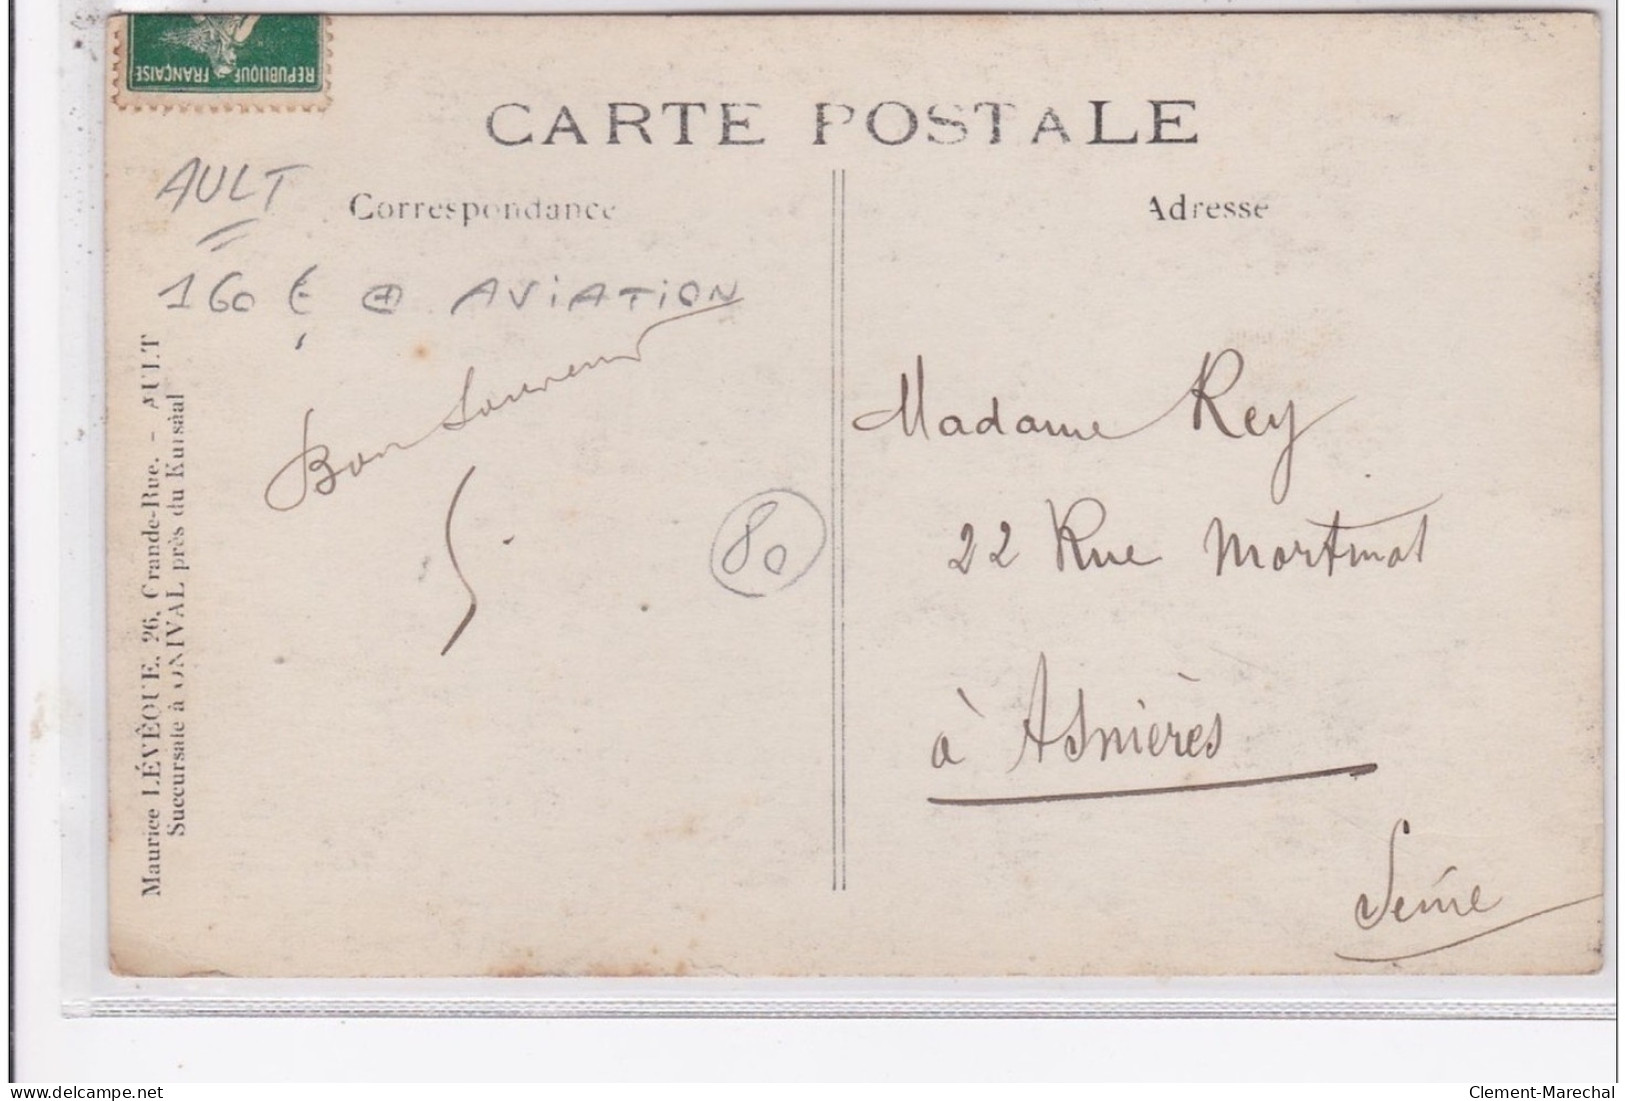 REPUBLIQUE FRANÇAISE
CARTE POSTALE
AULT
Correspondance
Adresse
160 € AVIATION
Bon Souvenir
S.
80
Madame Rey
22 Rue Mortinat
à Asnières
Seine
Maurice LÉVÊQUE, 26, Grande-Rue. - AULT
Succursale à ONIVAL près du Kursàal
delcampe.net
Clement-Marechal